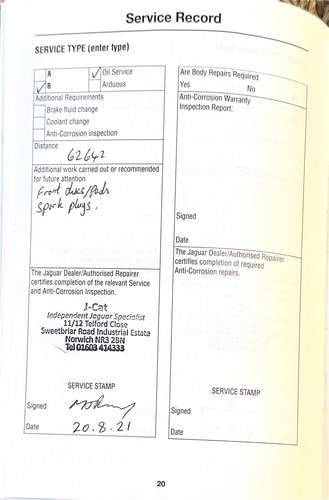 Service Record
SERVICE TYPE (enter type)
A
✓ Oil Service
✓ B
Arduous
Additional Requirements
Brake fluid change
Coolant change
Anti-Corrosion inspection
Distance
62642
Additional work carried out or recommended
for future attention
Front discs/Pads
spark plugs.
The Jaguar Dealer/Authorised Repairer
certifies completion of the relevant Service
and Anti-Corrosion Inspection.
J-Cat
Independent Jaguar Specialist
11/12 Telford Close
Sweetbriar Road Industrial Estate
Norwich NR3 2BN
Tel 01603 414333
SERVICE STAMP
Signed
Date 20.8.21
Are Body Repairs Required
Yes No
Anti-Corrosion Warranty
Inspection Report:
Signed
Date
The Jaguar Dealer/Authorised Repairer
certifies completion of required
Anti-Corrosion repairs.
SERVICE STAMP
Signed
Date
20